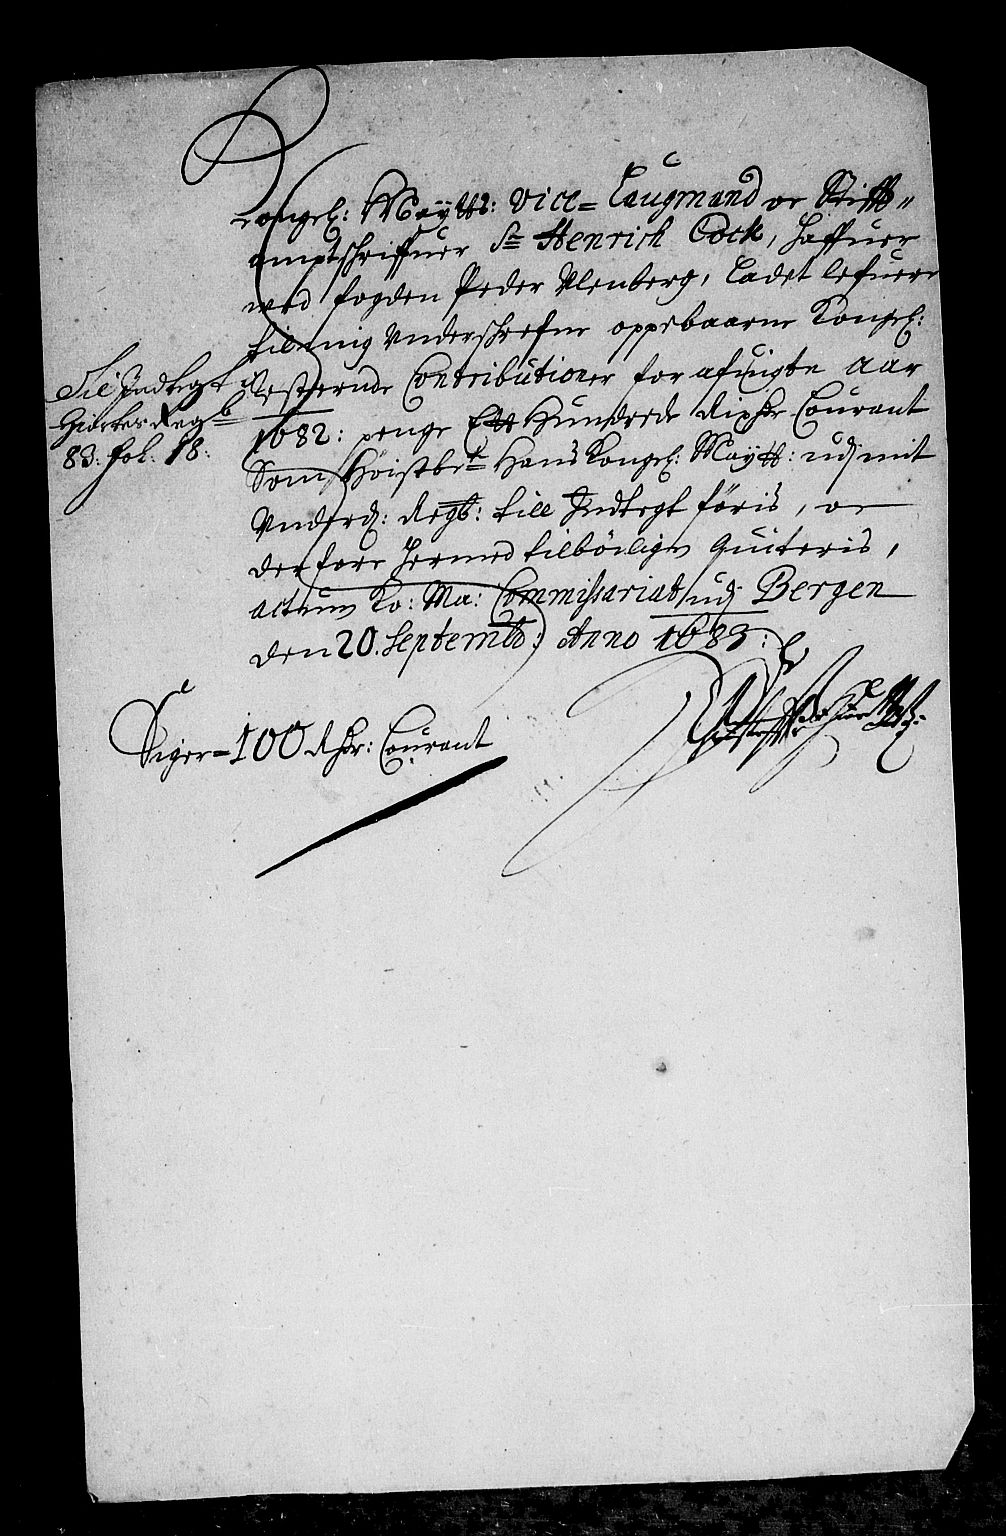 Kongel: Maÿtts: Vice= Laugmand oc Stiffts„
amptschriffuer Sr Henrich Cock, haffuer
med fogden Peder Ulenberg, ladet lefuere
till mig Underschrefne oppebaarne Kongel:
Resterende Contributioner for afvigte Aar
1682: penge Ett Hundrede Rixdr Courant
Som Höistbete Hans Kongel: Maytt: udj mit
Underd: Regb: till Indtegt föris, oc
derfore hermed tilbörligen quiteris,
actum Ko: Ma: Commissariat udj Bergen
den 20. Septemb: Anno 1683:
Til Indtegt
Giortes Regb
83: fol: 18:
Siger= 100 Rdr: Courant